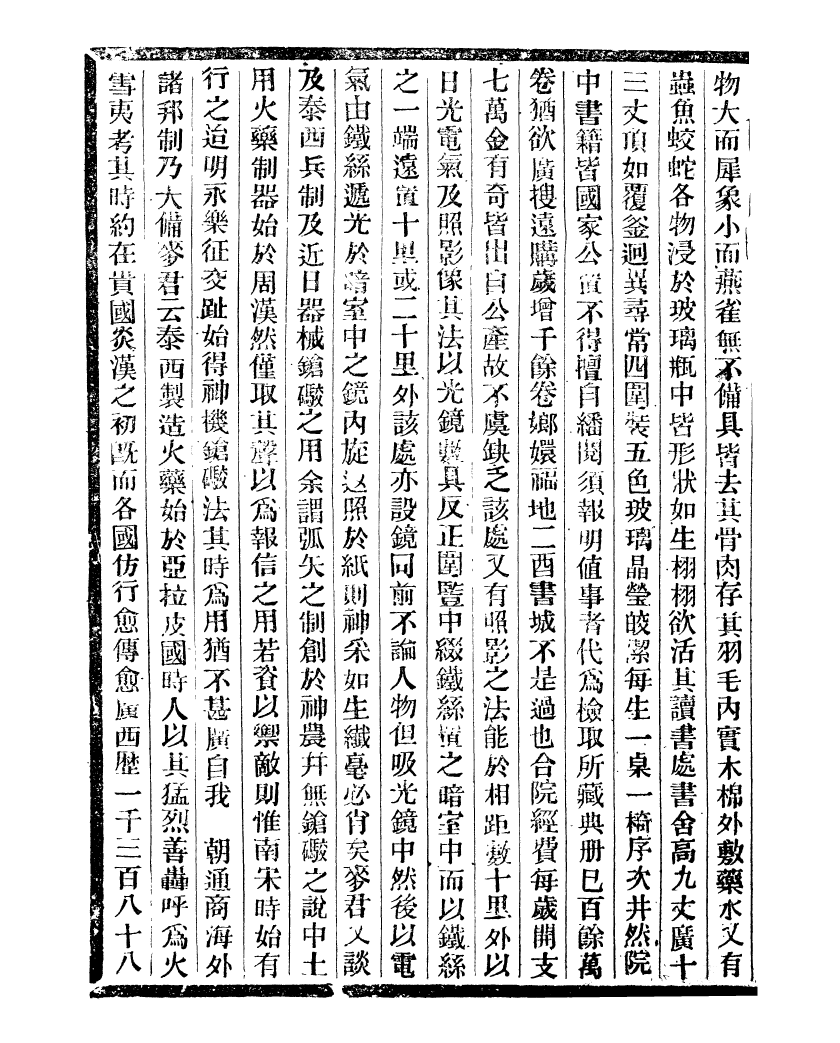 物大而犀象小而燕雀無不備具皆去其骨肉存其羽毛內實木棉外敷藥水又有
蟲魚蛟蛇各物浸於玻璃瓶中皆形狀如生栩栩欲活其讀書處書舍高九丈廣十
三丈頂如覆釜迥異尋常四圍裝五色玻璃晶瑩皎潔每生一桌一椅序次井然院
中書籍皆國家公置不得擅自繙閱須報明値事者代爲檢取所藏典册已百餘萬
卷猶欲廣搜遠購歲增千餘卷嫏嬛福地二酉書城不是過也合院經費每歲開支
七萬金有奇皆出自公產故不虞缺乏該處又有照影之法能於相距數十里外以
日光電氣及照影像其法以光鏡數具反正圍豎中綴鐵絲置之暗室中而以鐵絲
之一端遠置十里或二十里外該處亦設鏡同前不論人物但吸光鏡中然後以電
氣由鐵絲遞光於暗室中之鏡內旋返照於紙則神采如生纖毫必肖矣麥君又談
及泰西兵制及近日器械鎗礮之用余謂弧矢之制創於神農幷無鎗礮之說中土
用火藥制器始於周漢然僅取其聲以爲報信之用若資以禦敵則惟南宋時始有
行之迨明永樂征交趾始得神機鎗礮法其時爲用猶不甚廣自我　朝通商海外
諸邦制乃大備麥君云泰西製造火藥始於亞拉皮國時人以其猛烈善轟呼爲火
雪夷考其時約在貴國炎漢之初既而各國仿行愈傳愈廣西歷一千三百八十八